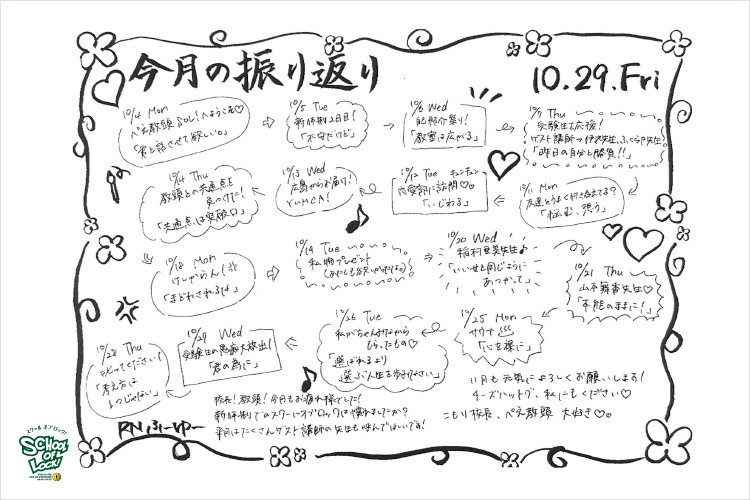 今月の振り返り
10.29.Fri
10/4 Mon
ぺえ教頭 SOL!へようこそ♡
「君と話させて欲しい。」
10/5 Tue
新体制2日目!
「不安だけど」
10/6 Wed
配布介祭り!
「教室は広がる」
10/7 Thu
受験生を応援!
ゲスト講師→伊沢先生、ふくらP先生!
「昨日の自分と勝負!!」
10/11 Mon
友達とうまく付き合えてる?
「悩む、想う」
10/12 Tue キュンキュン
恋愛部に訪問♡♡
「いじわる」
10/13 Wed
広島からお届け!
YUMCA!
10/14 Thu
教頭との共通点を
見つけた!
「共通点は突破口」
10/18 Mon
けしからん!!
「まどわされるなよ」
10/19 Tue
私物プレゼント
10/20 Wed
稲村亜美先生♪
「いいせと同じように
あつかって」
10/21 Thu
山本舞香先生♡
「本能のままに!」
10/25 Mon
サウナ
「心を裸に」
10/26 Tue
私がちゃんすながら
もらったもの♡
「選ばれるより
選ぶ人生を歩みなさい」
10/27 Wed
受験生の愚痴大放出!
「君の為に」
10/28 Thu
とどってください!
「考え方は
1つじゃない」
校長!教頭!今月もお疲れ様でした!
新体制でのスクールオブロックには慣れましたか?
来月はたくさんゲスト講師の先生も呼んでほしいです!
11月も元気によろしくお願いします!
チーズハットグ、私にもください♡
こもり校長、ぺえ教頭 大好き♡。
RN ふーゆー
スクール オブ ロック!
SCHOOL
OF
LOCK!